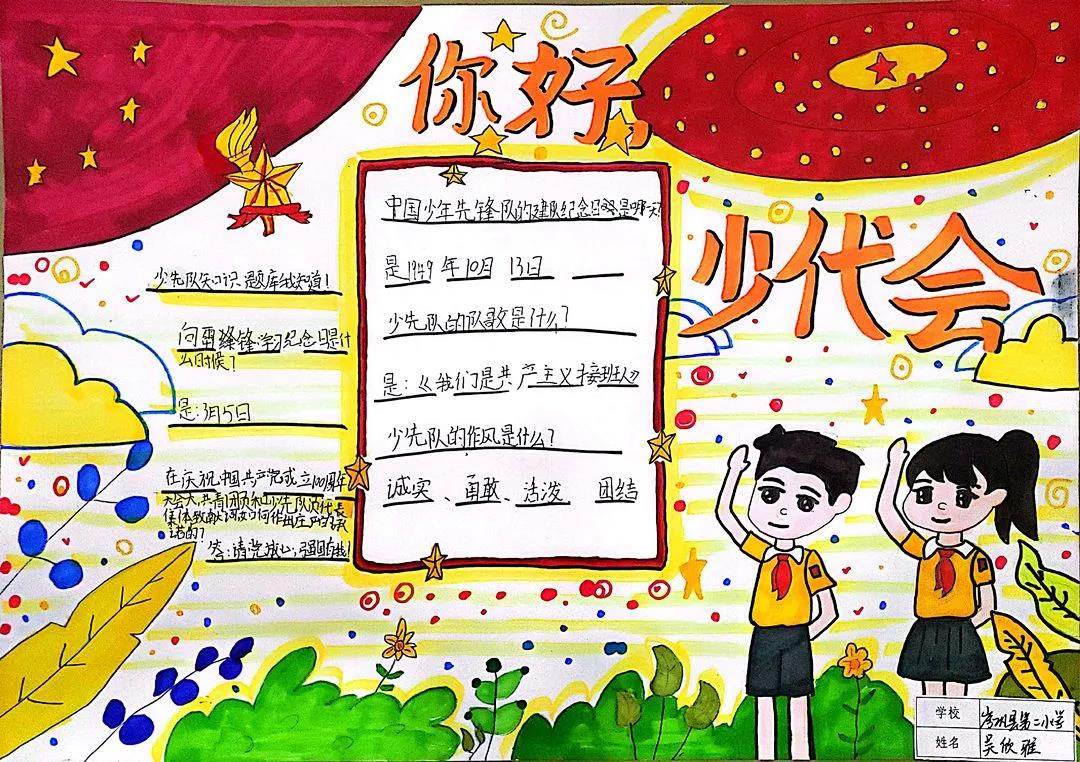 你好,
少代会
少先队知识题库我知道!
向雷锋学习纪念日是什
么时候?
是:3月5日
在庆祝中国共产党成立100周年
大会上,共青团员和少先队员代表
集体致献词
答:请党放心,强国有我!
中国少年先锋队的建队纪念日是哪一天?
是1949年10月13日
少先队的队歌是什么?
是:《我们是共产主义接班人》
少先队的作风是什么?
诚实、勇敢、活泼 团结
学校 第二小学
姓名 吴欣雅